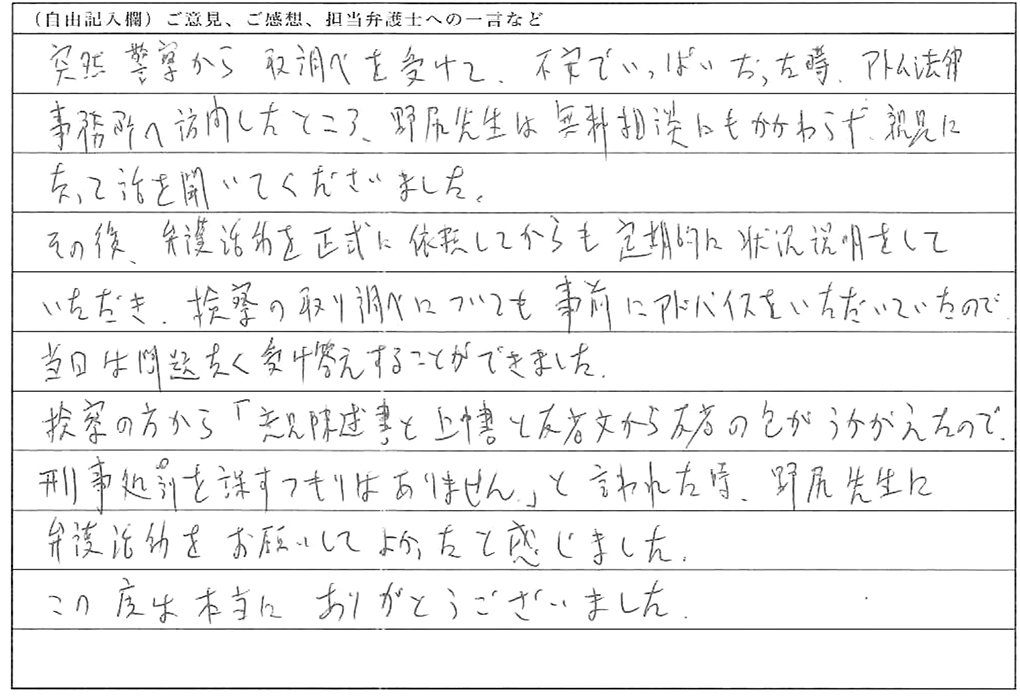 (自由記入欄)ご意見、ご感想、担当弁護士への一言など
突然 警察から 取調べを受けて、不安でいっぱいだった時、アトム法律
事務所へ訪問したところ、野尻先生は無料相談にもかかわらず、親身に
なって話を聞いてくださいました。
その後、弁護活動を正式に依頼してからも定期的に状況説明をして
いただき、検察の取り調べについても事前にアドバイスをいただいていたので、
当日は問題なく受け答えすることができました。
検察の方から「意見陳述書と上申書と反省文から反省の色がうかがえたので、
刑事処罰を課すつもりはありません。」と言われた時、野尻先生に
弁護活動をお願いしてよかったと感じました。
この度は本当にありがとうございました。